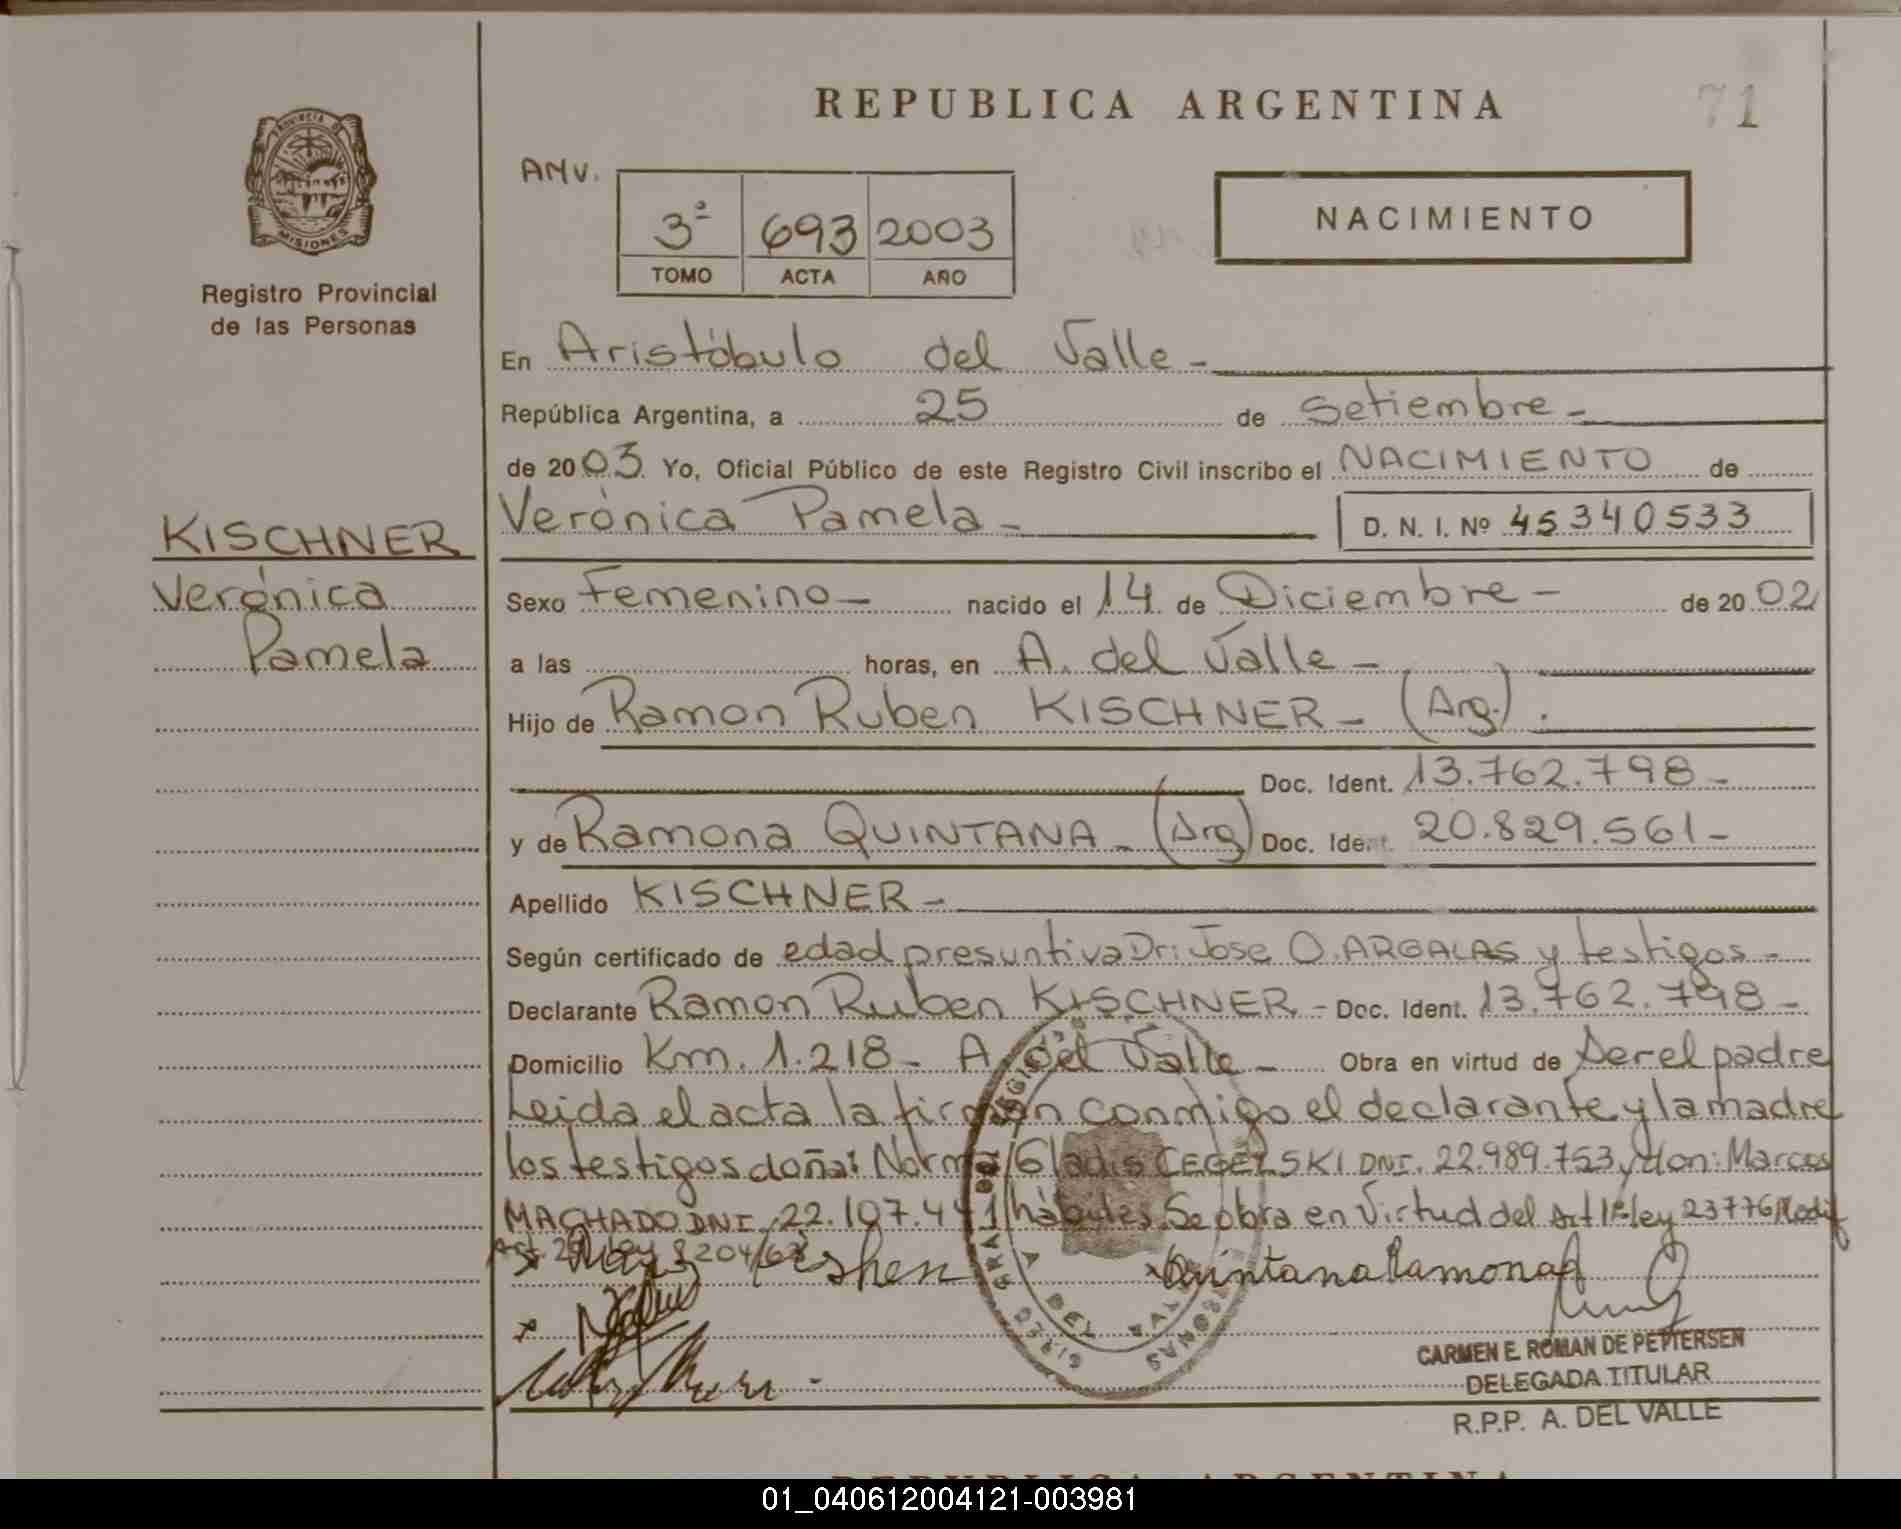 REPUBLICA ARGENTINA
71
PROVINCIA DE
MISIONES
Registro Provincial
de las Personas
ANV.
3ª 693 2003
TOMO ACTA AÑO
NACIMIENTO
En Aristóbulo del Valle -
República Argentina, a 25 de Setiembre -
de 2003. Yo, Oficial Público de este Registro Civil inscribo el NACIMIENTO de
KISCHNER
Verónica
Pamela
Verónica Pamela - D. N. I. Nº 45340533
Sexo Femenino - nacido el 14 de Diciembre - de 2002
a las horas, en A. del Valle -
Hijo de Ramon Ruben KISCHNER - (Arg.).
Doc. Ident. 13.762.798 -
y de Ramona QUINTANA - (Arg) Doc. Ident. 20.829.561 -
Apellido KISCHNER -
Según certificado de edad presuntiva Dr: Jose O. ARGALAS y testigos -
Declarante Ramon Ruben KISCHNER - Doc. Ident. 13.762.798 -
Domicilio Km. 1.218 - A. del Valle - Obra en virtud de ser el padre
Leida el acta la firman conmigo el declarante y la madre
los testigos doña: Norma Gladis CEGELSKI DNI. 22.989.753 y don: Marcos
MACHADO DNI. 22.107.441 hábiles. Se obra en Virtud del Art 1º ley 23776 Modif
Art. 29 ley 8204/63
Quintana Ramona
CARMEN E. ROMAN DE PETTERSEN
DELEGADA TITULAR
R.P.P. A. DEL VALLE
REPUBLICA ARGENTINA
01_040612004121-003981